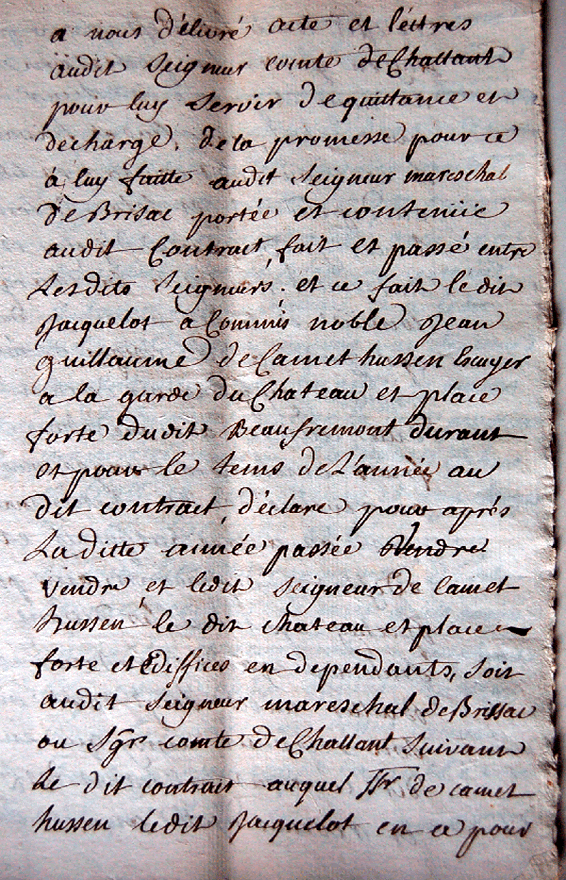 a nous délivré acte et léttres
audit Seigneur comte de Challant
pour luy servir de quittance et
decharge, de la promesse pour ce
à luy faitte audit Seigneur mareschal
de Brisac portée et contenüe
audit Contract, fait et passé entre
Lesdits Seigneurs; et ce fait ledit
Jacquelot a Commis noble Jean
guillaume de Camet hussen Escuyer
a la garde du Chateau et place
forte dudit Beaufremont durant
et pour le tems de L'année au
dit contract, déclaré pour après
La ditte année passée
vendre, et ledit Seigneur de Camet
hussen le dit chateau et place
forte et Ediffices en dependants, soit
audit Seigneur mareschal de Brissac
ou Sgr comte de Challant Suivant
Le dit contract auquel Sr de camet
hussen ledit Jacquelot en ce pour